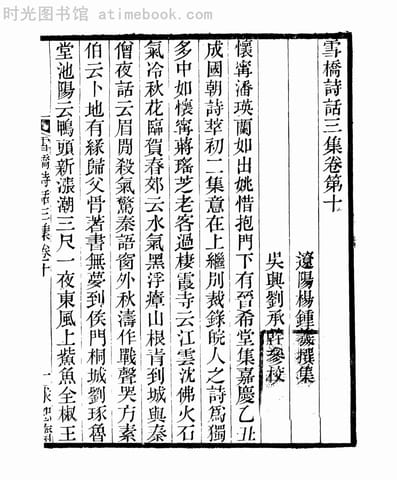 时光图书馆 www.atimebook.com
雪橋詩話三集卷第十
遼陽楊鍾羲撰集
吳興劉承幹參校
懷寧潘瑛蘭如出姚惜抱門下有晉希堂集嘉慶乙丑
成國朝詩萃初二集意在上繼別裁錄皖人之詩爲獨
多中如懷寧蔣瑤芝老客過棲霞寺云江雲沈佛火石
氣冷秋花臨賀春郊云水氣黑浮瘴山根青到城與秦
僧夜話云眉閒殺氣驚秦語窗外秋濤作戰聲哭方素
伯云卜地有緣歸父骨著書無夢到侯門桐城劉琢魯
堂池陽云鴨頭新漲潮三尺一夜東風上鮆魚全椒王
雪橋詩話三集卷十
一